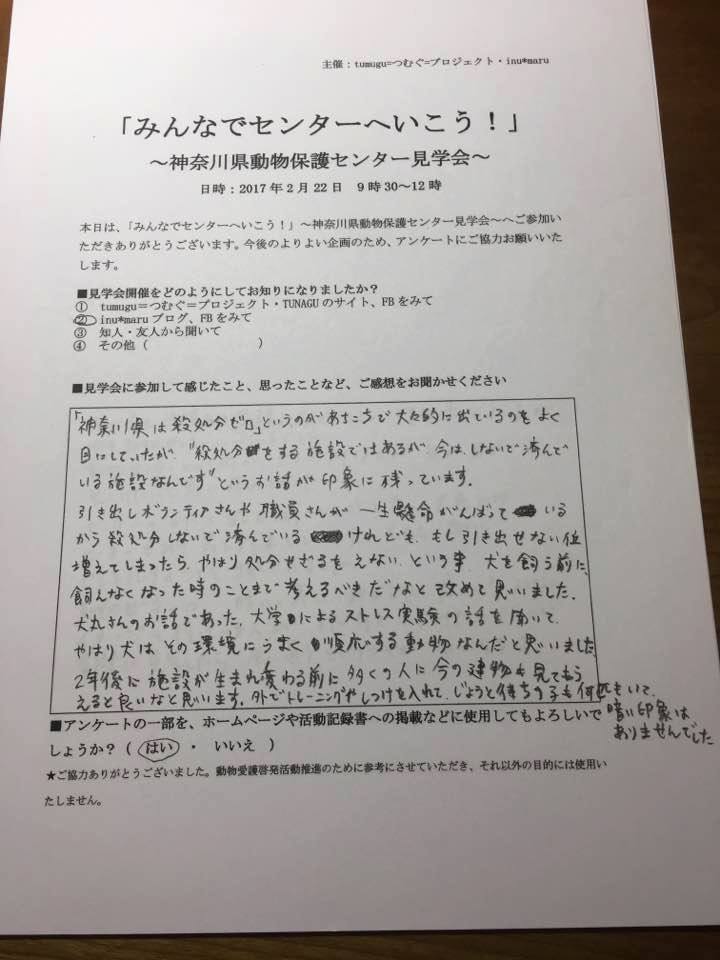 主催：tumugu=つむぐ=プロジェクト・inu*maru
「みんなでセンターへいこう！」
～神奈川県動物保護センター見学会～
日時：2017年2月22日　9時30～12時
本日は、「みんなでセンターへいこう！」～神奈川県動物保護センター見学会～へご参加い
ただきありがとうございます。今後のよりよい企画のため、アンケートにご協力お願いいた
します。
■見学会開催をどのようにしてお知りになりましたか？
①　tumugu＝つむぐ＝プロジェクト・TUNAGUのサイト、FBをみて
②　inu*maruブログ、FBをみて
③　知人・友人から聞いて
④　その他（　　　　　　　　　）
■見学会に参加して感じたこと、思ったことなど、ご感想をお聞かせください
「神奈川県は殺処分ゼロ」というのがあちこちで大々的に出ているのをよく
目にしていたが、"殺処分をする施設ではあるが、今は、しないで済んで
いる施設なんです"というお話が印象に残っています。
引き出しボランティアさんや職員さんが一生懸命がんばって いる
から殺処分しないで済んでいる けれども、もし引き出せない位
増えてしまったら、やはり処分せざるをえない、という事、犬を飼う前に、
飼えなくなった時のことまで考えるべきだなと改めて思いました。
犬丸さんのお話であった、大学 によるストレス実験の話を聞いて、
やはり犬はその環境にうまく順応する動物なんだと思いました
2年後に施設が生まれ変わる前に多くの人に今の建物も見てもら
えると良いなと思います。外でトレーニングやしつけを入れて、じょうと待ちの子も何匹もいて、
暗い印象は
ありませんでした
■アンケートの一部を、ホームページや活動記録書への掲載などに使用してもよろしいで
しょうか？（　はい　・　いいえ　）
★ご協力ありがとうございました。動物愛護啓発活動推進のために参考にさせていただき、それ以外の目的には使用い
たしません。